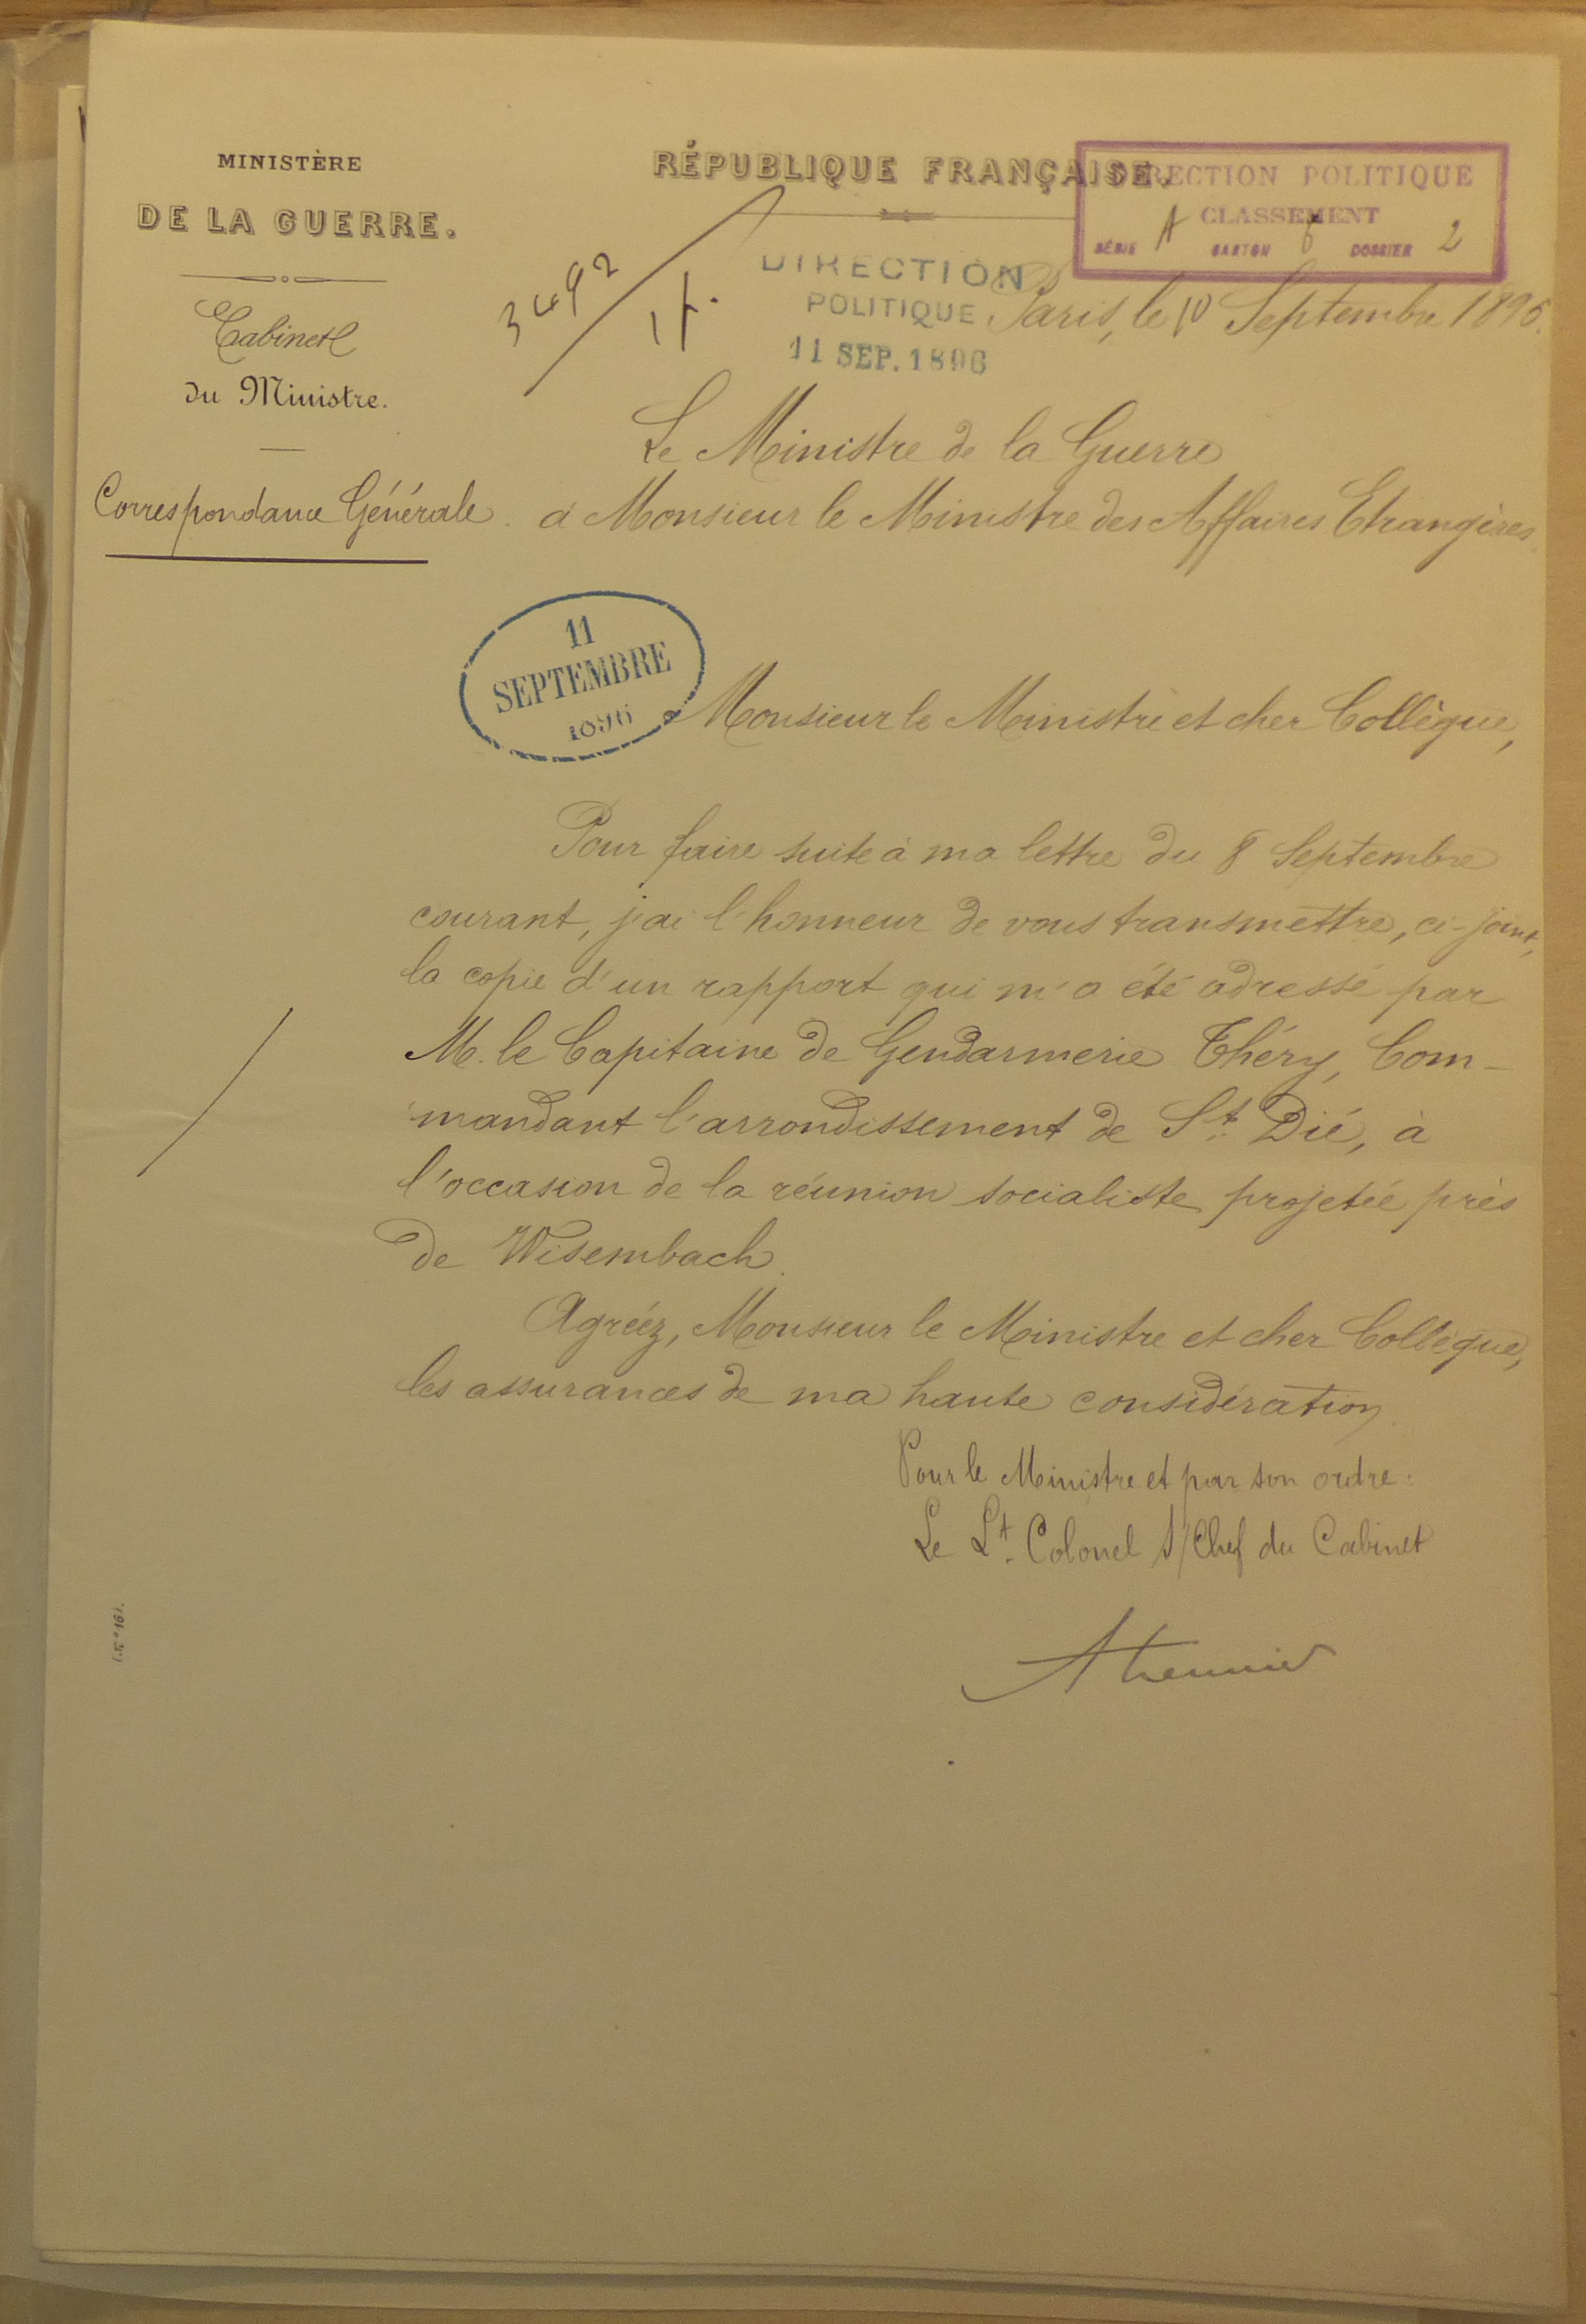 MINISTÈRE
DE LA GUERRE.
Cabinet
du Ministre.
Correspondance Générale.
RÉPUBLIQUE FRANÇAISE.
DIRECTION POLITIQUE
CLASSEMENT
SÉRIE A CARTON 6 DOSSIER 2
3492
DIRECTION
POLITIQUE
11 SEP. 1896
Paris, le 10 Septembre 1896.
Le Ministre de la Guerre
à Monsieur le Ministre des Affaires Etrangères.
11
SEPTEMBRE
1896
Monsieur le Ministre et cher Collègue,
Pour faire suite à ma lettre du 8 Septembre
courant, j'ai l'honneur de vous transmettre, ci-joint,
la copie d'un rapport qui m'a été adressé par
M. le Capitaine de Gendarmerie Théry, Com-
mandant l'arrondissement de St. Dié, à
l'occasion de la réunion socialiste projetée près
de Wisembach.
Agréez, Monsieur le Ministre et cher Collègue,
les assurances de ma haute considération.
Pour le Ministre et par son ordre:
Le Lt. Colonel S/Chef du Cabinet
(N° 16).